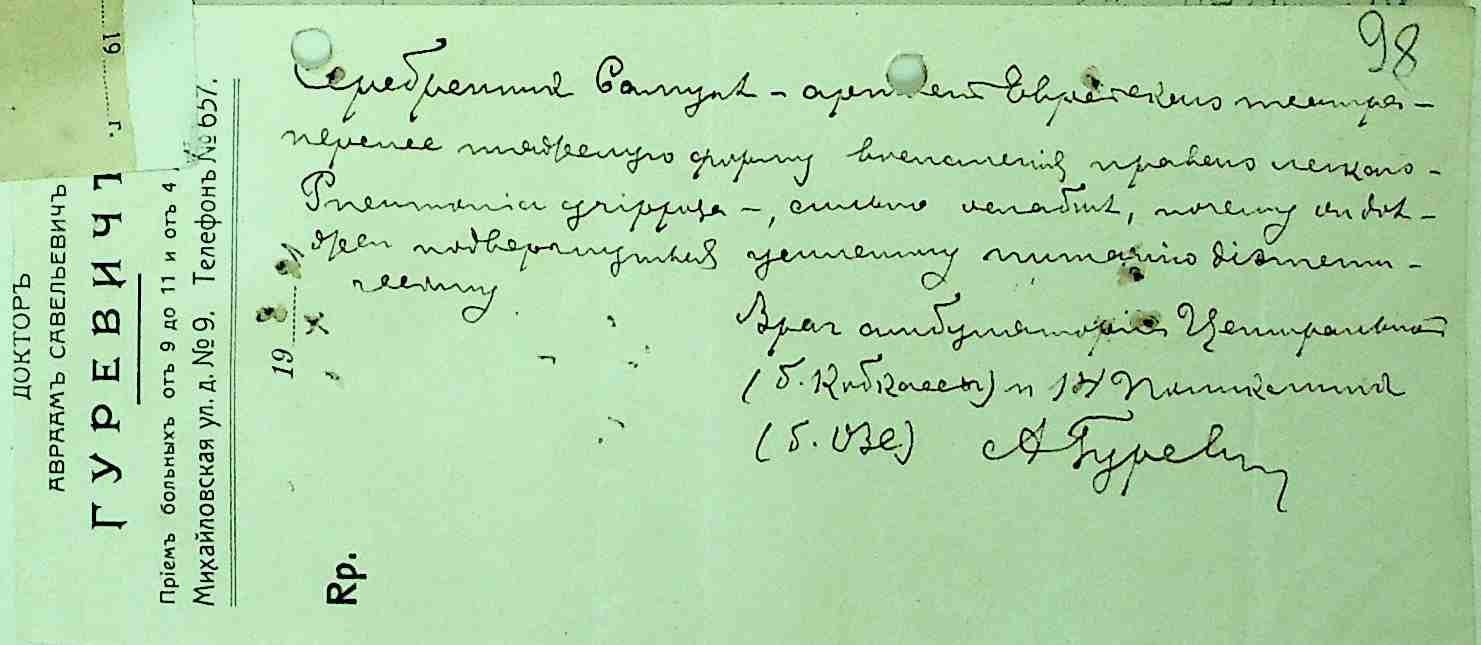 98
19 г.
ДОКТОРЪ
АВРААМЪ САВЕЛЬЕВИЧЪ
ГУРЕВИЧЪ
Пріемъ больныхъ отъ 9 до 11 и отъ 4
Михайловская ул. д. № 9. Телефонъ № 657.
19
Rp.
Серебренник Самуил – артист Еврейского театра –
перенес тяжелую форму воспаления правого легкого –
Pneumonia gripposa –, сильно ослабел, почему он дол-
жен подвергнуться усиленному питанию діэтети-
ческому
Врач амбулаторіи Центральной
(б. ) и 14 
(б. ОЗЕ) А Гуревич